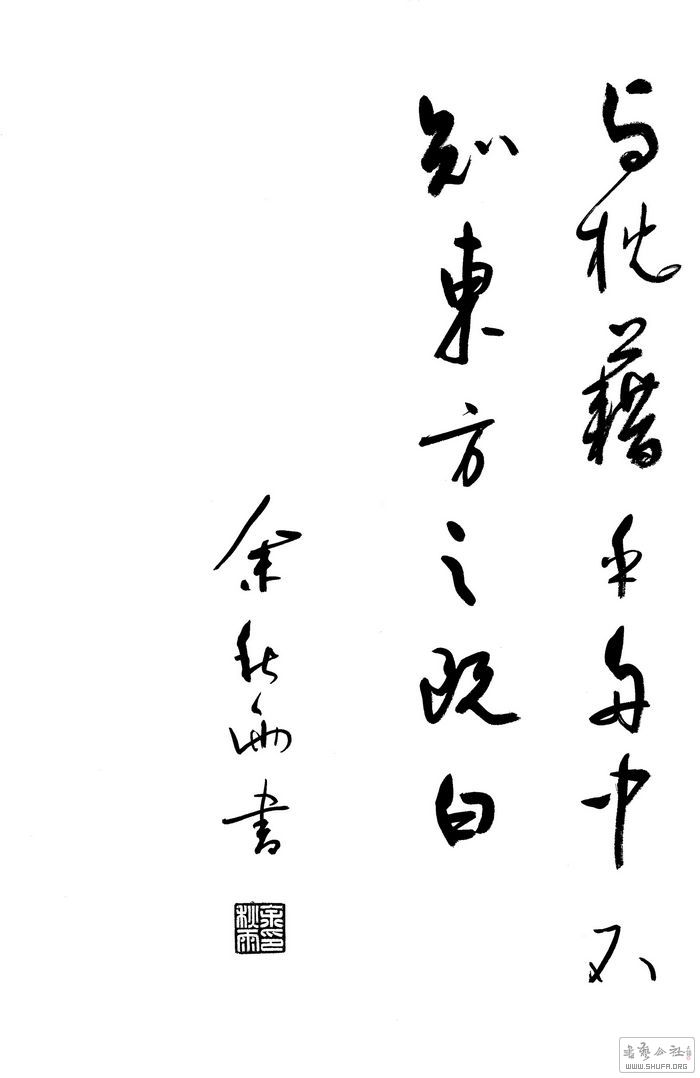 与枕藉乎舟中不
知東方之既白
余秋雨書
余秋雨印
书艺公社
WWW.SHUFA.ORG